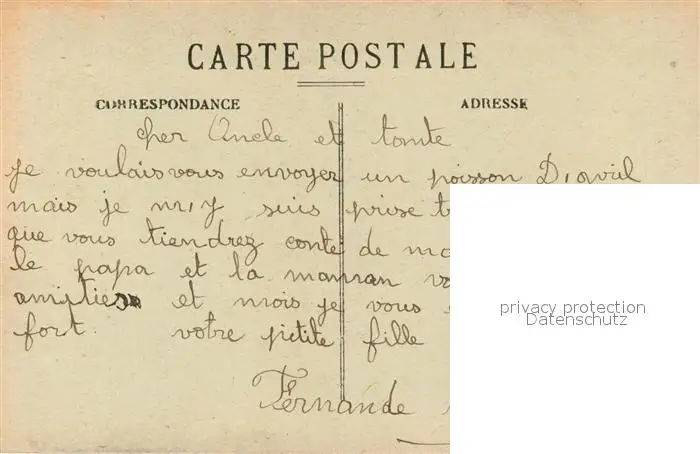 CARTE POSTALE
CORRESPONDANCE
ADRESSE
cher Oncle et tante
je voulais vous envoyer un poisson D'avril
mais je m,y suis prise
que vous tiendrez conte de
le papa et la maman
amitiés et mois je vous
fort. votre petite fille
Fernande
privacy protection
Datenschutz